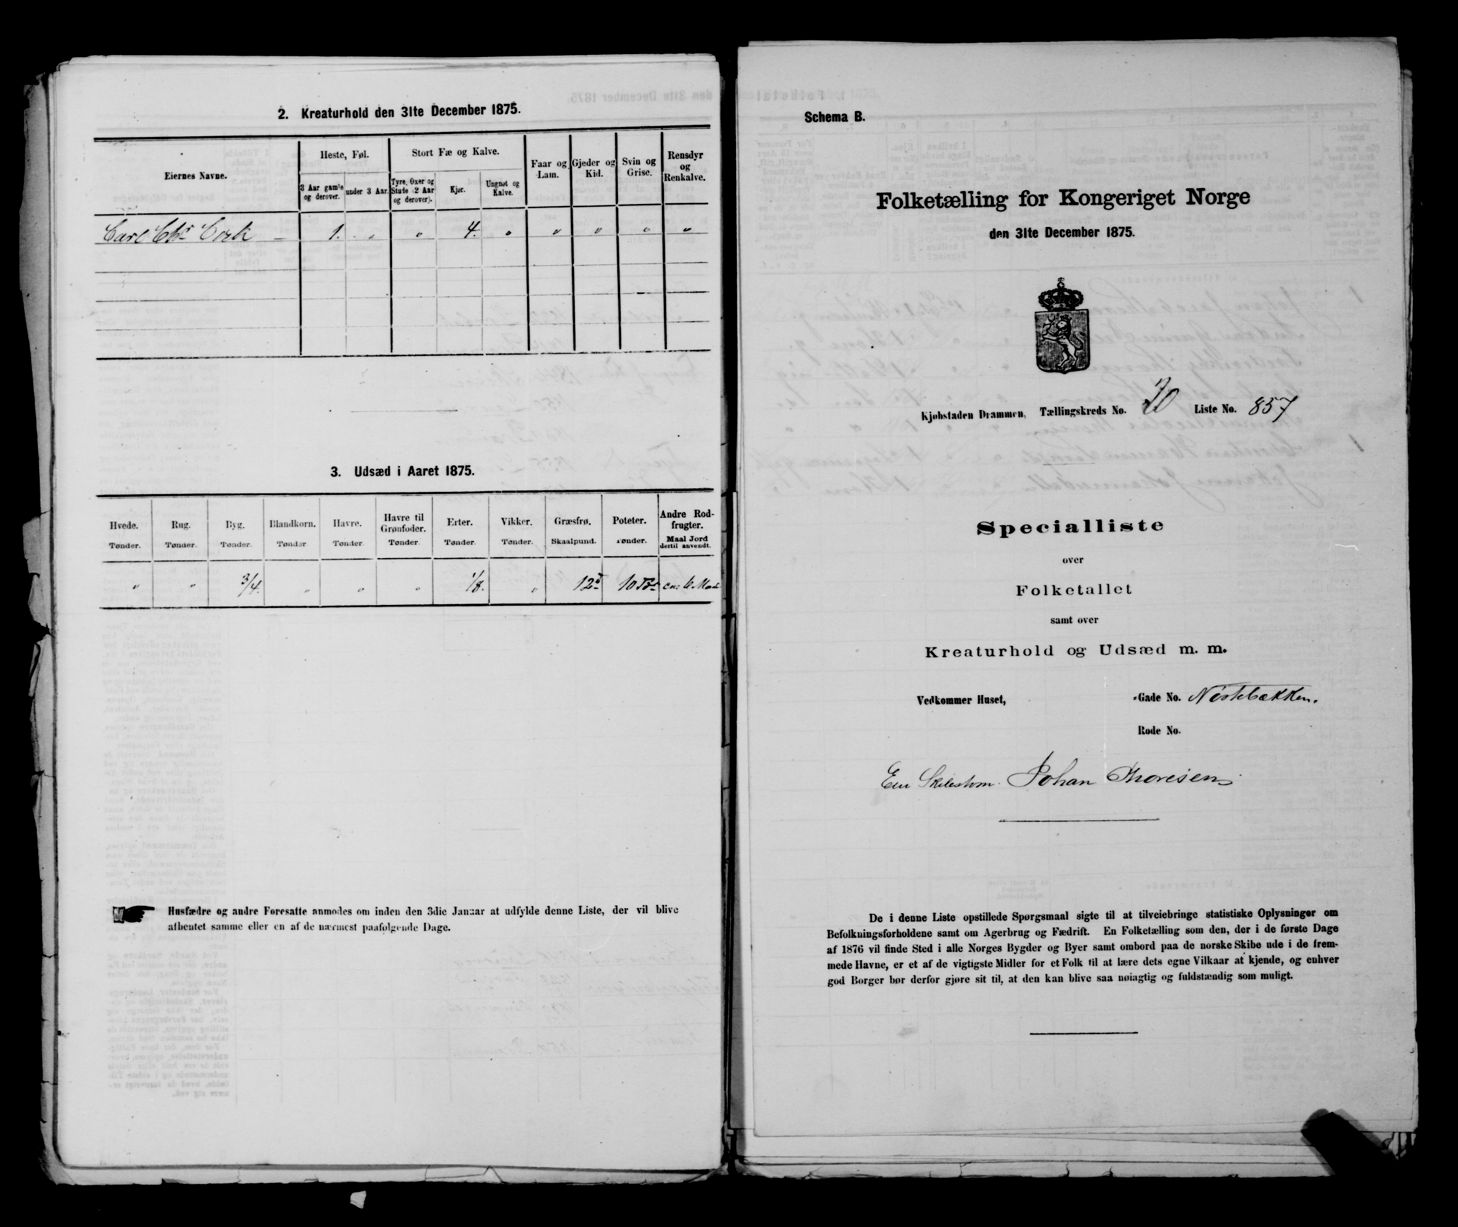 2. Kreaturhold den 31te December 1875.
Eiernes Navne.
Heste, Føl.
Stort Fæ og Kalve.
Faar og Lam.
Gjeder og Kid.
Svin og Grise.
Rensdyr og Renkalve.
3 Aar gamle og derover.
under 3 Aar.
Tyre, Oxer og Stude (2 Aar og derover).
Kjør.
Ungnøt og Kalve.
Carl Chr 1. " " 4. " " " " "
3. Udsæd i Aaret 1875.
Hvede. Rug. Byg. Blandkorn. Havre. Havre til Grønfoder. Erter. Vikker. Græsfrø. Poteter. Andre Rodfrugter.
Tønder. Tønder. Tønder. Tønder Tønder. Tønder. Tønder. Tønder. Skaalpund. Tønder. Maal Jord dertil anvendt.
" " 3/4. " " " 1/8. " 12 10
Husfædre og andre Foresatte anmodes om inden den 3die Januar at udfylde denne Liste, der vil blive
afhentet samme eller en af de nærmest paafølgende Dage.
Schema B.
Folketælling for Kongeriget Norge
den 31te December 1875.
Kjøbstaden Drammen, Tællingskreds No. 20 Liste No. 857
Specialliste
over
Folketallet
samt over
Kreaturhold og Udsæd m. m.
Vedkommer Huset, -Gade No. Nøstebækken.
Rode No.
Eier Johan Thoresen
De i denne Liste opstillede Spørgsmaal sigte til at tilveiebringe statistiske Oplysninger om
Befolkningsforholdene samt om Agerbrug og Fædrift. En Folketælling som den, der i de første Dage
af 1876 vil finde Sted i alle Norges Bygder og Byer samt ombord paa de norske Skibe ude i de frem-
mede Havne, er et af de vigtigste Midler for et Folk til at lære dets egne Vilkaar at kjende, og enhver
god Borger bør derfor gjøre sit til, at den kan blive saa nøiagtig og fuldstændig som muligt.